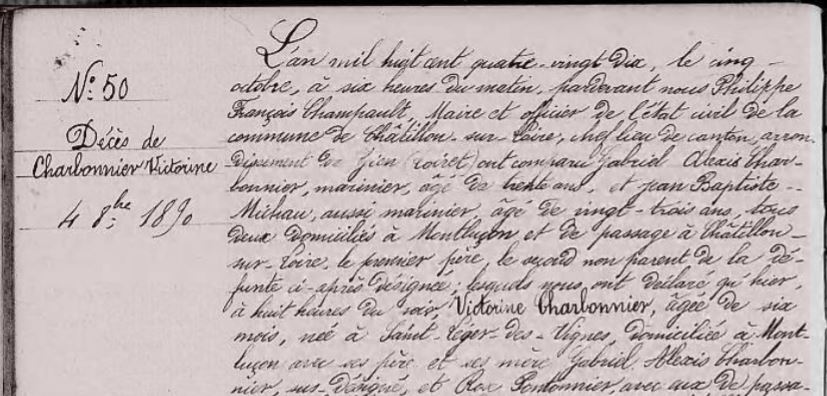 N° 50
Décès de
Charbonnier Victorine
4 8bre 1890
L'an mil huit cent quatre-vingt dix, le cinq
octobre, à six heures du matin, pardevant nous Philippe
François Champault, Maire et officier de l'état civil de la
commune de Châtillon-sur-Loire, chef lieu de canton, arron-
dissement de Gien (Loiret) ont comparu Gabriel Alexis Char-
bonnier, marinier, âgé de trente ans, et Jean Baptiste
Michau, aussi marinier, âgé de vingt-trois ans, tous
deux domiciliés à Montluçon et de passage à Châtillon-
sur-Loire, le premier père, le second non parent de la dé-
funte ci-après désignée; lesquels nous ont déclaré qu'hier,
à huit heures du soir, Victorine Charbonnier, âgée de six
mois, née à Saint-Léger-des-Vignes, domiciliée à Mont-
luçon avec ses père et ses mère Gabriel Alexis Charbon-
nier, sus-désigné, et Rose avec eux de passa-